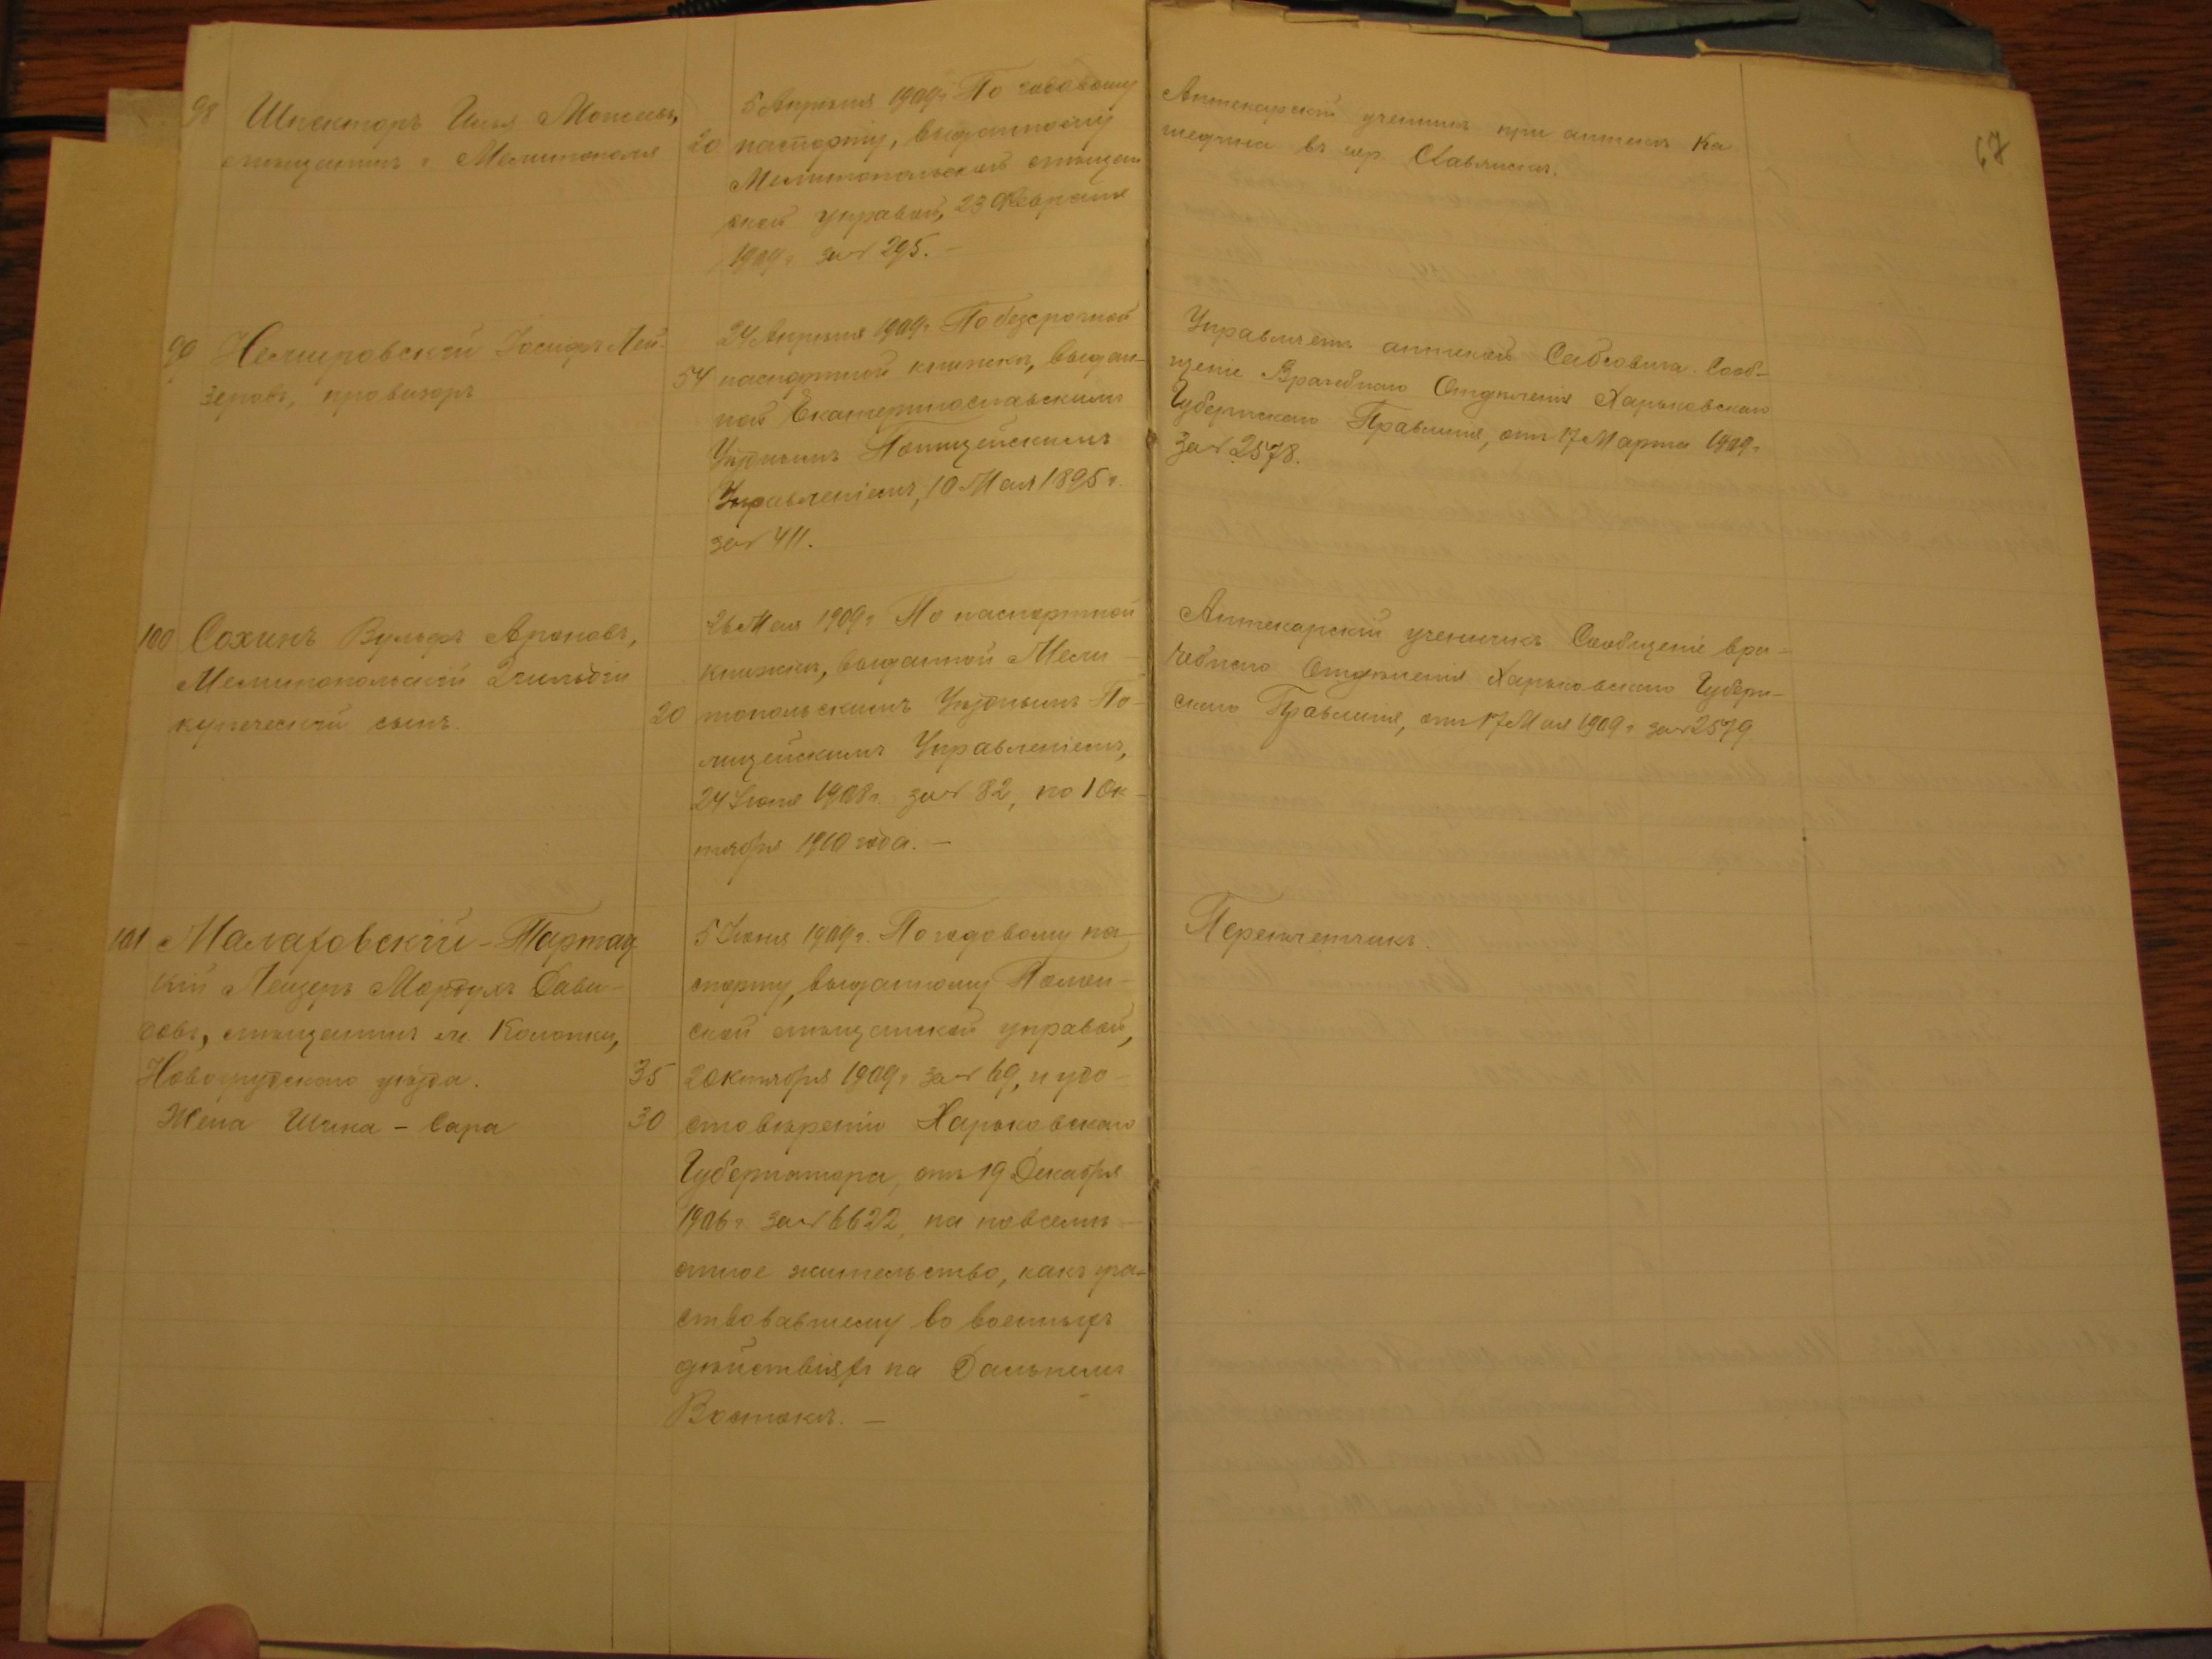 67
98 Шпекторъ Илья Моисеевъ,
мѣщанинъ г. Мелитополя
20
5 Апрѣля 1909 г. По годовому
паспорту, выданному
Мелитопольской мѣщан
ской управой, 23 Февраля
1909 г. за № 295. —
Аптекарскій ученикъ при аптекѣ Ка
въ гор. Славянскѣ.
99 Немировскій Іосифъ Лей-
зеровъ, провизоръ
54
24 Апрѣля 1909 г. По безсрочной
паспортной книжкѣ, выдан-
ной Екатеринославскимъ
Уѣзднымъ Полицейскимъ
Управленіемъ, 10 Мая 1895 г.
за № 411.
Управляетъ аптекой Сабсовича. Сооб-
щеніе Врачебнаго Отдѣленія Харьковскаго
Губернскаго Правленія, отъ 17 Марта 1909 г.
за № 2578.
100 Сохинъ Вульфъ Ароновъ,
Мелитопольскій 2 гильдіи
купеческій сынъ.
20
26 Мая 1909 г. По паспортной
книжкѣ, выданной Мели-
топольскимъ Уѣзднымъ По-
лицейскимъ Управленіемъ,
24 1908 г. за № 82, по 1 Ок-
тября 1910 года. —
Аптекарскій ученикъ Сообщеніе вра-
чебнаго Отдѣленія Харьковскаго Губерн-
скаго Правленія, отъ 17 Мая 1909 г. за № 2579
101 Малаховскій-Тартац
кій Лейзеръ Мордухъ Дави-
довъ, мѣщанинъ м.
Новогрудскаго уѣзда.
35
Жена Шика - Сара
30
5 Іюня 1909 г. По годовому па-
спорту, выданному
ской мѣщанской управой,
2 Октября 1909 г. за № 69, и удо-
стовѣренію Харьковскаго
Губернатора, отъ 19 Декабря
1906 г. за № 6622, на повсемѣ-
стное жительство, какъ уча-
ствовавшему во военныхъ
дѣйствіяхъ на Дальнемъ
Востокѣ. —
Переплетчикъ.